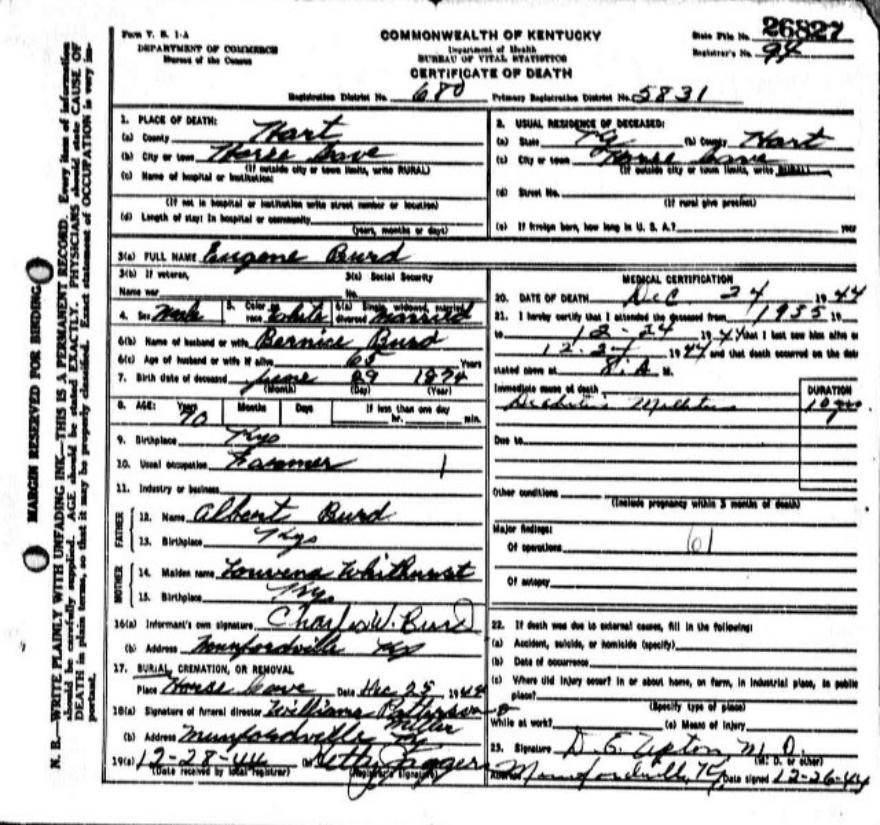 Form V. S. 1-A
DEPARTMENT OF COMMERCE
Bureau of the Census
COMMONWEALTH OF KENTUCKY
Department of Health
BUREAU OF VITAL STATISTICS
CERTIFICATE OF DEATH
State File No. 26827
Registrar's No. 94
Registration District No. 680 Primary Registration District No. 5831
MARGIN RESERVED FOR BINDING
N. B.—WRITE PLAINLY WITH UNFADING INK—THIS IS A PERMANENT RECORD. Every item of information
should be carefully supplied. AGE should be stated EXACTLY. PHYSICIANS should state CAUSE OF
DEATH in plain terms, so that it may be properly classified. Exact statement of OCCUPATION is very im-
portant.
1. PLACE OF DEATH:
(a) County Hart
(b) City or town Horse Cave
(If outside city or town limits, write RURAL)
(c) Name of hospital or institution:
(If not in hospital or institution write street number or location)
(d) Length of stay: In hospital or community
(years, months or days)
2. USUAL RESIDENCE OF DECEASED:
(a) State Ky (b) County Hart
(c) City or town Horse Cave
(If outside city or town limits, write RURAL)
(d) Street No.
(If rural give precinct)
(e) If foreign born, how long in U. S. A.? year
3(a) FULL NAME Eugene Burd
3(b) If veteran,
Name war
3(c) Social Security
No.
4. Sex Male 5. Color or race White 6(a) Single, widowed, married, divorced Married
6(b) Name of husband or wife Bernice Burd
6(c) Age of husband or wife if alive 65 Years
7. Birth date of deceased June 29 1874
(Month) (Day) (Year)
8. AGE: Years 70 Months Days If less than one day
hr. min.
9. Birthplace Ky
10. Usual occupation Farmer
11. Industry or business
FATHER
12. Name Albert Burd
13. Birthplace Ky
MOTHER
14. Maiden name Louvena Whithurst
15. Birthplace Ky
16(a) Informant's own signature Charles W. Burd
(b) Address Munfordville Ky
17. BURIAL, CREMATION, OR REMOVAL
Place Horse Cave Date Dec 25 1944
18(a) Signature of funeral director Williams Patterson &
Miller
(b) Address Munfordville Ky
19(a) 12-28-44 (b) Jaggers
(Date received by local registrar) (Registrar's signature)
MEDICAL CERTIFICATION
20. DATE OF DEATH Dec. 24 1944
21. I hereby certify that I attended the deceased from 1935 19
to 12-24 1944 that I last saw him alive on
12-24 1944 and that death occurred on the date
stated above at 8. A M.
Immediate cause of death
Diabetis Mellitus
DURATION
10 yrs
Due to
Other conditions
(Include pregnancy within 3 months of death)
Major findings:
Of operations 61
Of autopsy
22. If death was due to external causes, fill in the following:
(a) Accident, suicide, or homicide (specify)
(b) Date of occurrence
(c) Where did injury occur? In or about home, on farm, in industrial place, in public
place?
(Specify type of place)
While at work? (e) Means of injury
23. Signature D. E. Upton, M. D.
(M. D. or other)
Address Munfordville, Ky. Date signed 12-26-44